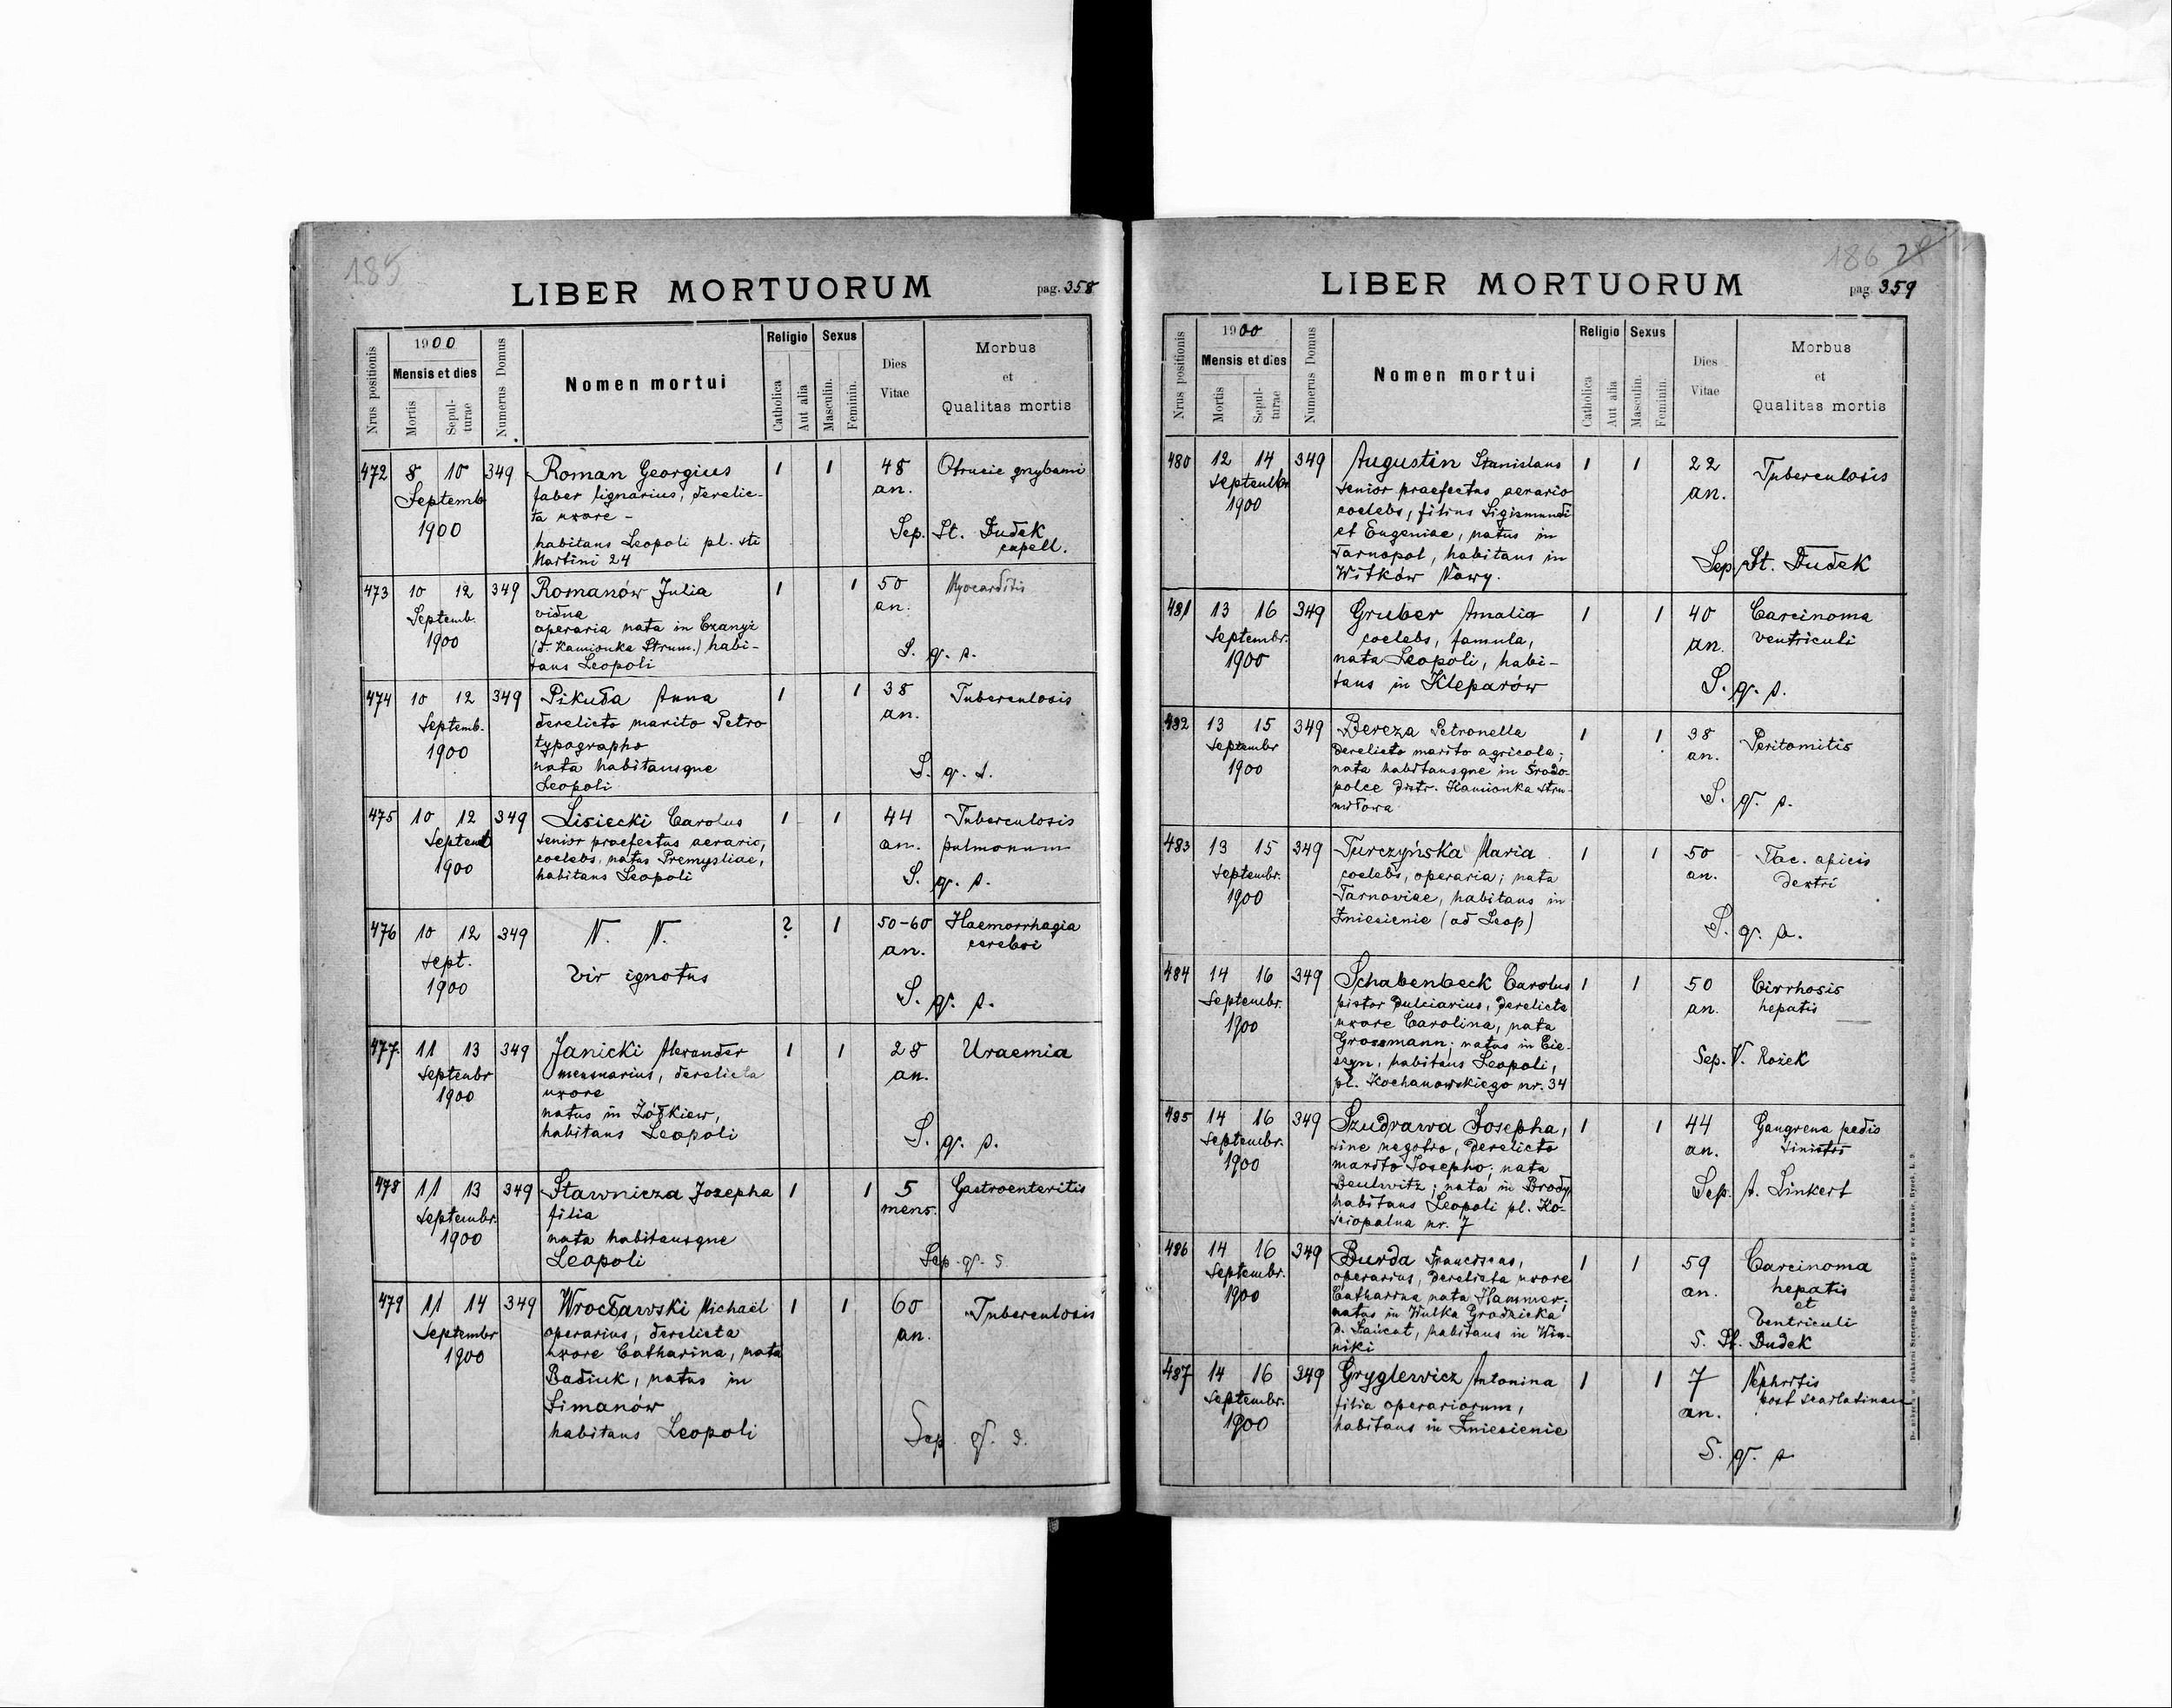 185
LIBER MORTUORUM
pag. 358
Nrus positionis
1900
Mensis et dies
Mortis
Sepul-
turae
Numerus Domus
Nomen mortui
Religio
Catholica
Aut alia
Sexus
Masculin.
Feminin.
Dies
Vitae
Morbus
et
Qualitas mortis
472 8 10 349 Roman Georgius 1 1 48 Otrucie grzybami
Septemb faber lignarius, derelic- an.
1900 ta uxore -
habitans Leopoli pl. sti Sep. St. Dudek
Martini 24 capell.
473 10 12 349 Romanów Julia 1 1 50 Myocarditis
Septemb. vidua an.
1900 operaria nata in Czanyż
(d. Kamionka Strum.) habi- S. q. s.
tans Leopoli
474 10 12 349 Pikuła Anna 1 1 38 Tuberculosis
Septemb. derelicto marito Petro an.
1900 typographo
nata habitansque S. q. s.
Leopoli
475 10 12 349 Lisiecki Carolus 1 1 44 Tuberculosis
Septemb senior praefectus aerario, an. pulmonum
1900 coelebs, natus Premysliae,
habitans Leopoli S. q. s.
476 10 12 349 N. N. ? 1 50-60 Haemorrhagia
Sept. vir ignotus an. cerebri
1900 S. q. s.
477. 11 13 349 Janicki Alexander 1 1 28 Uraemia
Septembr mensuarius, derelicta an.
1900 uxore
natus in Żółkiew,
habitans Leopoli S. q. s.
478 11 13 349 Stawnicza Josepha 1 1 5 Gastroenteritis
Septembr. filia mens.
1900 nata habitansque
Leopoli Sep. q. s.
479 11 14 349 Wrocławski Michaël 1 1 60 Tuberculosis
Septembr operarius, derelicta an.
1900 uxore Catharina, nata
Badiuk, natus in
Simanów
habitans Leopoli Sep. q. s.
186 28
LIBER MORTUORUM
pag. 359
Nrus positionis
1900
Mensis et dies
Mortis
Sepul-
turae
Numerus Domus
Nomen mortui
Religio
Catholica
Aut alia
Sexus
Masculin.
Feminin.
Dies
Vitae
Morbus
et
Qualitas mortis
480 12 14 349 Augustin Stanislaus 1 1 22 Tuberculosis
Septembr senior praefectus aerario an.
1900 coelebs, filius Sigismundi
et Eugeniae, natus in
Tarnopol, habitans in Sep. St. Dudek
Witków Nowy.
481 13 16 349 Gruber Amalia 1 1 40 Carcinoma
Septembr. coelebs, famula, an. ventriculi
1900 nata Leopoli, habi-
tans in Kleparów S. q. s.
482 13 15 349 Bereza Petronella 1 1 38 Peritomitis
Septembr derelicto marito agricola; an.
1900 nata habitansque in Środo-
polce distr. Kamionka Stru- S. q. s.
miłowa
483 13 15 349 Turczyńska Maria 1 1 50 Tbc. apicis
Septembr. coelebs, operaria; nata an. dextri
1900 Tarnoviae, habitans in
Zniesienie (ad Leop) S. q. s.
484 14 16 349 Schabenbeck Carolus 1 1 50 Cirrhosis
Septembr. pistor dulciarius, derelicta an. hepatis
1900 uxore Carolina, nata
Grossmann; natus in Cie-
szyn, habitans Leopoli, Sep. V. Rożek
pl. Kochanowskiego nr. 34
485 14 16 349 Szudrawa Josepha, 1 1 44 Gangrena pedis
Septembr. sine negotio, derelicto an. sinistri
1900 marito Josepho; nata
Beulwitz; nata in Brody Sep. A. Linkert
habitans Leopoli pl. Ko-
sciopalna nr. 7
486 14 16 349 Burda Franciscus, 1 1 59 Carcinoma
Septembr. operarius, derelicta uxore an. hepatis
1900 Catharina nata Hausner; et
natus in Wulka Grodzicka ventriculi
d. Łańcut, habitans in Win- S. St. Dudek
niki
487 14 16 349 Gryglewicz Antonina 1 1 7 Nephritis
Septembr. filia operariorum, an. post scarlatinam
1900 habitans in Zniesienie
S. q. s